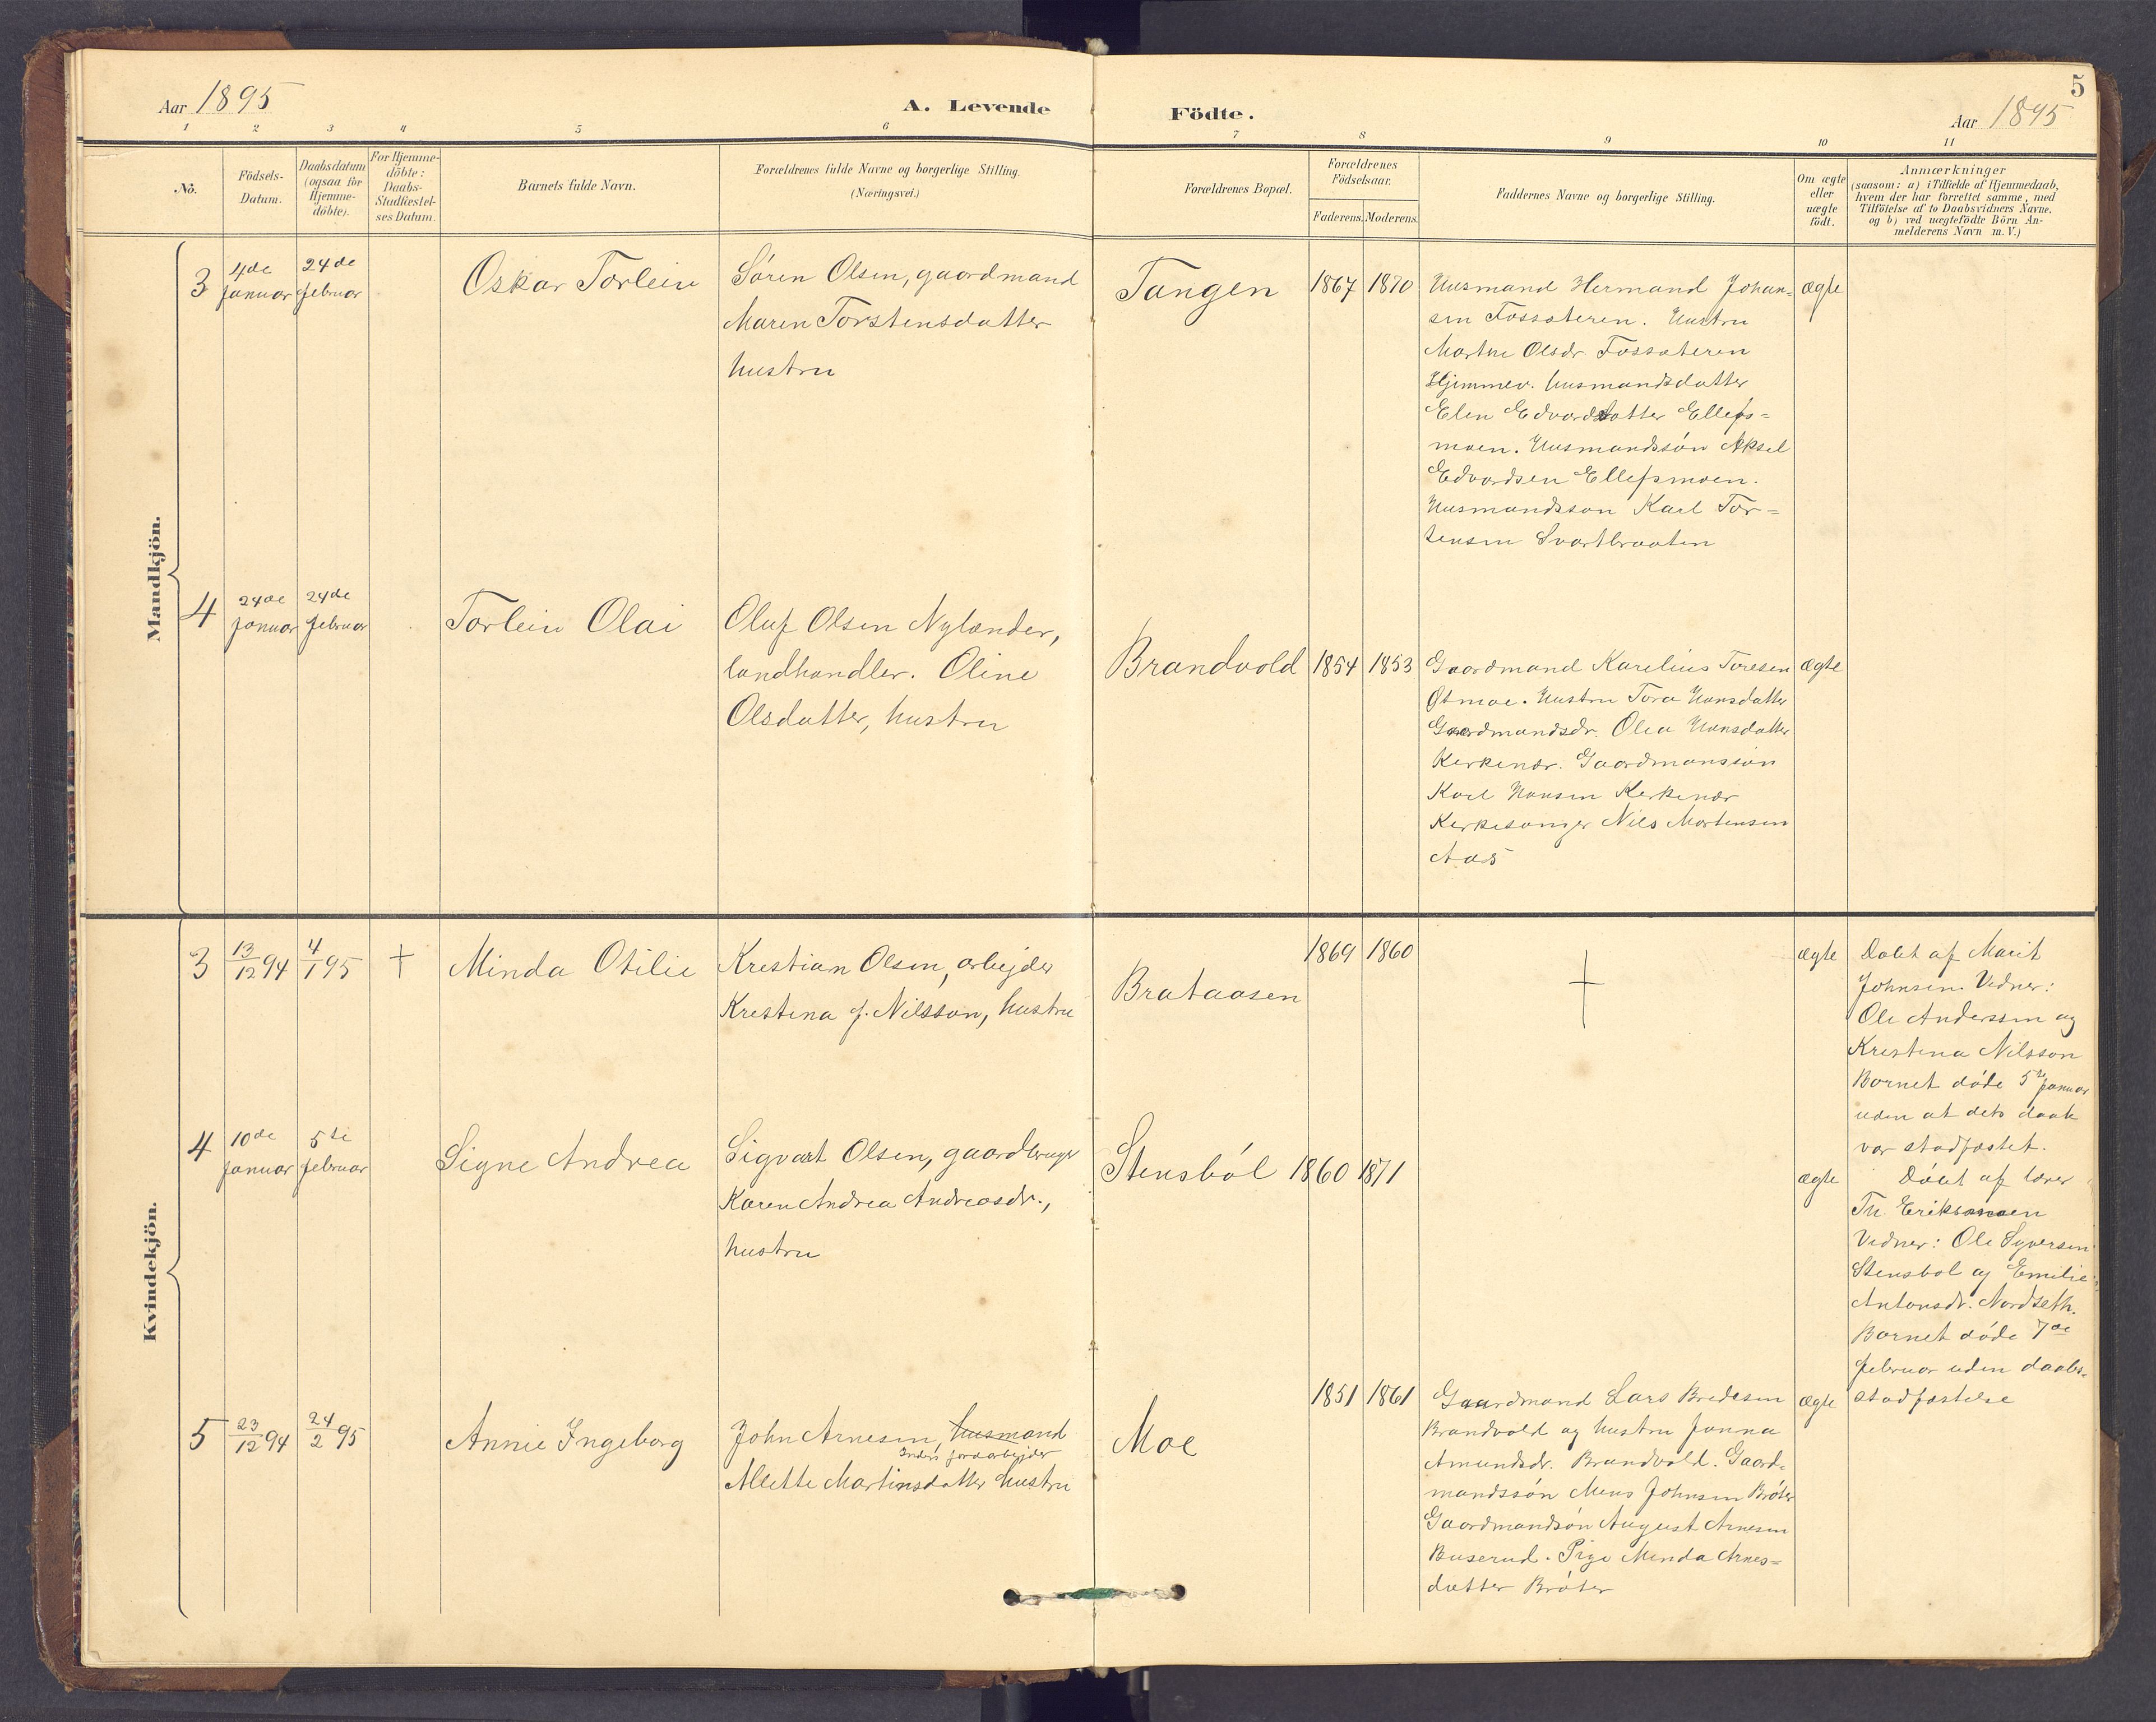 5
Aar 1895
A. Levende Födte.
Aar 1895
1 2 3 4 5 6 7 8 9 10 11
No.
Födsels-
Datum.
Daabsdatum
(ogsaa for
Hjemme-
döbte).
For Hjemme-
döbte:
Daabs-
Stadfæstel-
ses Datum.
Barnets fulde Navn.
Forældrenes fulde Navne og borgerlige Stilling.
(Næringsvei.)
Forældrenes Bopæl.
Forældrenes
Födselsaar.
Faderens.
Moderens.
Faddernes Navne og borgerlige Stilling.
Om ægte
eller
uægte
födt.
Anmærkninger
(saasom: a) i Tilfælde af Hjemmedaab,
hvem der har forrettet samme, med
Tilföielse af to Daabsvidners Navne,
og b) ved uægtefödte Börn An-
melderens Navn m. V.)
Mandkjön.
3
4de
januar
24de
februar
Oskar Torlein
Sören Olsen, gaardmand
Maren Torstensdatter
hustru
Tangen
1867
1870
Husmand Hermand Johan-
sen Fossateren. Hustru
Marthe Olsdr. Fossateren
Hjemmev. husmandsdatter
Elen Edvardsdatter Ellefs-
moen. Husmandssön Aksel
Edvardsen Ellefsmoen.
Husmandsson Karl Tor-
stensen Svartbraaten
ægte
4
24de
januar
24de
februar
Torlein Olai
Oluf Olsen Nylænder,
landhandler. Oline
Olsdatter, hustru
Brandvold
1854
1853
Gaardmand Karelius Toresen
Östmoe. Hustru Tora Hansdatter
Gaardmandsdr. Olea Hansdatter
Kerkenær. Gaardmanssön
Karl Hansen Kerkenær
Kerkesanger Nils Mortensen
Aas
ægte
Kvindekjön.
3
13/12 94
4/1 95
†
Minda Otilie
Krestian Olsen, arbejder
Krestina f. Nilsson, hustru
Brataasen
1869
1860
†
ægte
Döbt af Marit
Johnsen. Vidner:
Ole Anderssen og
Krestina Nilsson
Barnet döde 5te januar
uden at dets daab
var stadfæstet.
4
10de
januar
5te
februar
Signe Andrea
Sigvart Olsen, gaardbruger
Karen Andrea Andreasdr.,
hustru
Stensböl
1860
1871
ægte
Döbt af lærer
Th. Eriksmoen
Vidner: Ole Syversen
Stensböl og Emilie
Antonsdr. Nordseth.
Barnet döde 7de
februar uden daabs-
stadfæstelse
5
23/12 94
24/2 95
Annie Ingeborg
John Arnesen, husmand
Inders. jordarbejder
Mlette Martinsdatter hustru
Moe
1851
1861
Gaardmand Lars Bredesen
Brandvold og hustru Janna
Amundsdr. Brandvold. Gaard-
mandssön Mens Johnsen Bröter
Gaardmandsön August Arnesen
Buserud. Pige Minda Arnes-
datter Bröter
ægte